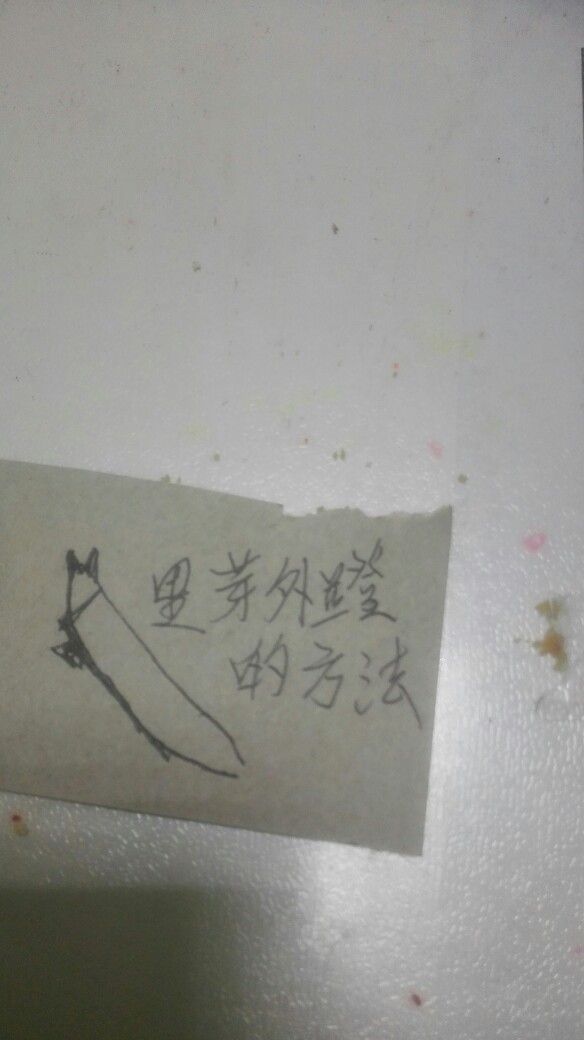 里芽外蹬
的方法